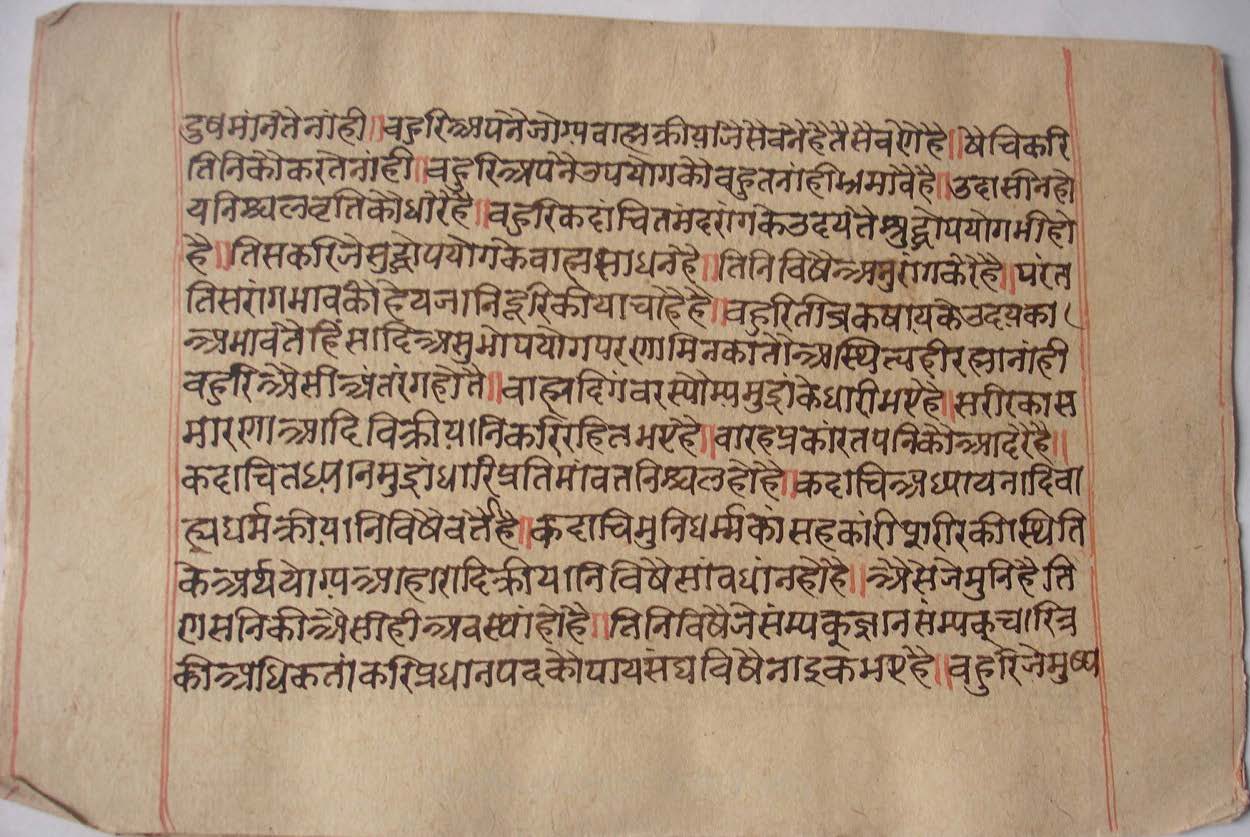 दुषमांनतेनांही॥वहुरिआपनैजोग्यवाह्यक्रीयाजैसैवनैहैतैसैवणेहै॥षैचिकरि
तिनिकौकरतेनांही॥वहुरिअपनैउपयोगकौवहुतनांहीभ्रमावैहै॥उदासीनहो
यनिश्चलवृतिकौधारैहै॥वहुरिकदाचितमंदरागकेउदयतेशुद्धोपयोगभीहो
है॥तिसकरिजेसुद्धोपयोगकेवाह्यसाधनहै॥तिनिविषैअनुरागकरैहै॥परंत
तिसरागभावकौहेयजानिदूरिकीयाचाहैहै॥वहुरितीव्रकषायकेउदयका
अभावतैहिंसादिअसुभोपयोगपरणामिनकातोअस्थित्वहीरह्यानांही
वहुरिऔसीअंतरंगहोतै॥वाह्यदिगंवरस्यौम्यमुद्राकेधारीभएहै॥सरीरकास
मारणाआदिविक्रीयानिकरिरहितभएहै॥वारहप्रकारतपनिकौआदरैहै॥
कदाचितध्यानमुद्राधारिप्रतिमावतनिश्चलहोहै॥कदाचिअध्यायनादिवा
ह्यधर्मक्रीयानिविषैवर्तैहै॥कदाचिमुनिधर्म्मकासहकारीशरीरकीस्थिति
केअर्थयोग्यआहारादिक्रीयानिविषैसावधांनहोहै॥औसेजेमुनिहैति
णसनिकीऔसीहीअवस्थाहोहै॥तिनिविषैजेसंम्यकूज्ञानसंम्यकूचारित्र
कीअधिकताकरिप्रधानपदकौपायसंघविषैनाइकभएहै॥वहुरिजेमुष्य